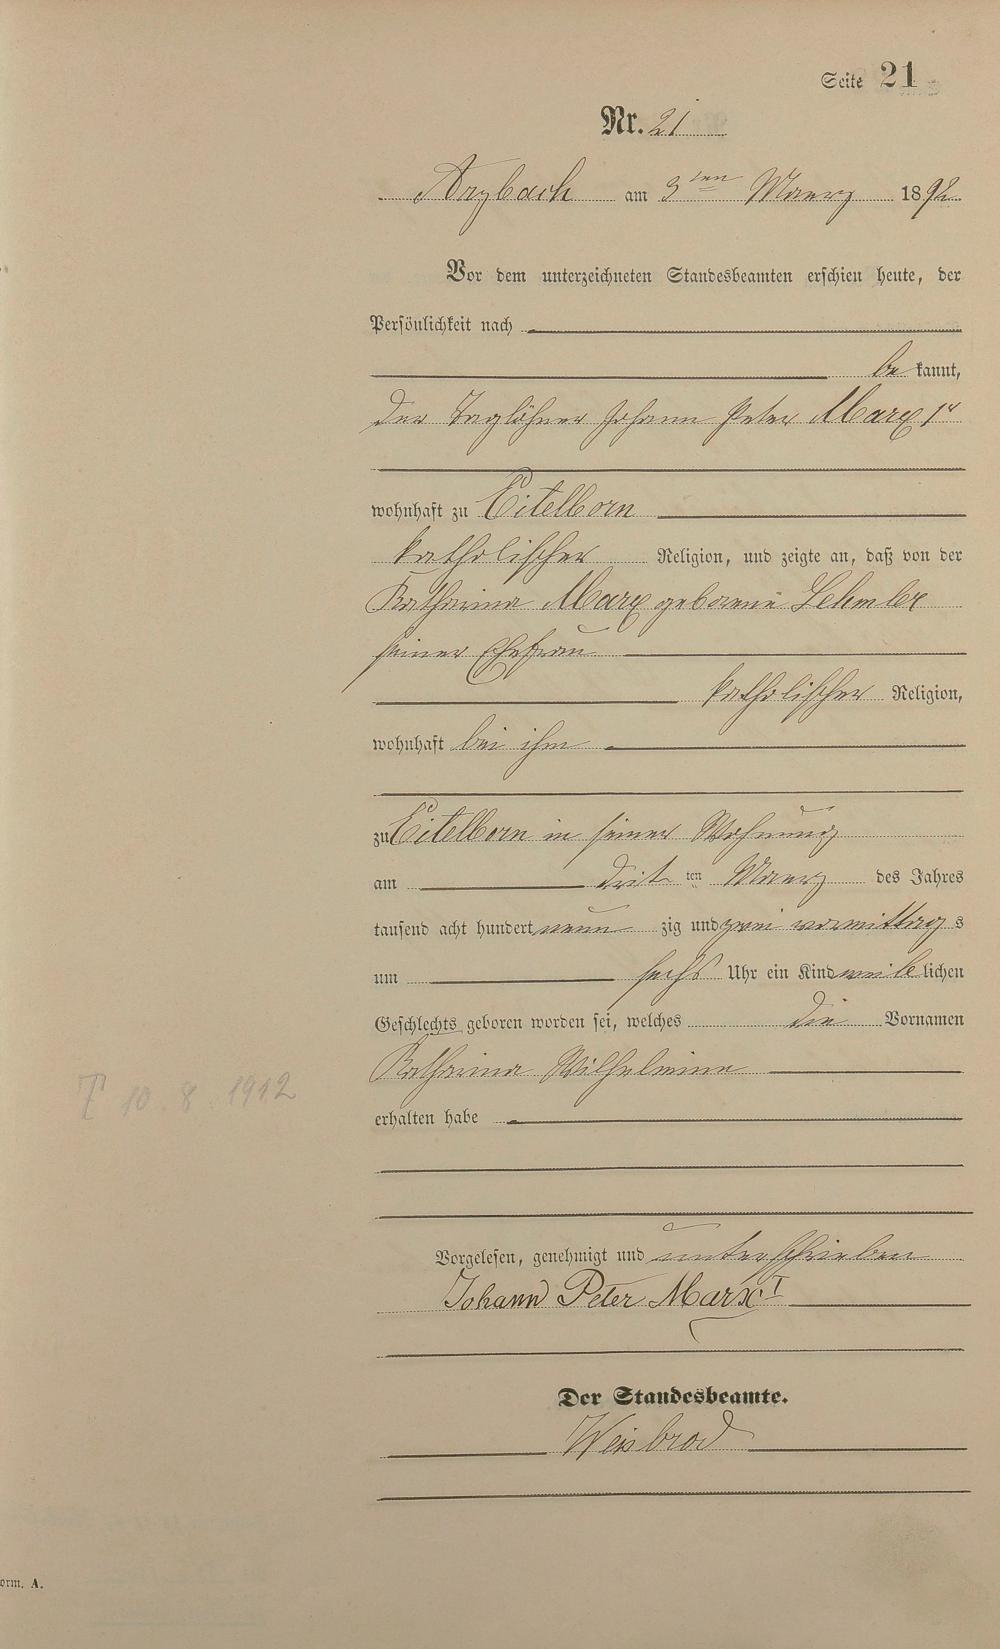 Seite 21
Nr. 21
Arzbach am 3ten Maerz 1892
Vor dem unterzeichneten Standesbeamten erschien heute, der
Persönlichkeit nach
bekannt,
der Taglöhner Johann Peter Marx 1r
wohnhaft zu Eitelborn
katholischer Religion, und zeigte an, daß von der
Katharina Marx geborene Lehmler
seiner Ehefrau
katholischer Religion,
wohnhaft bei ihm
zu Eitelborn in seiner Wohnung
am dritten Maerz des Jahres
tausend acht hundert neunzig und zwei vormittags
um sechs Uhr ein Kind weiblichen
Geschlechts geboren worden sei, welches die Vornamen
Katharina Wilhelmine
erhalten habe
† 10. 8. 1912
Vorgelesen, genehmigt und unterschrieben
Johann Peter Marx I
Der Standesbeamte.
Weisbrod
orm. A.